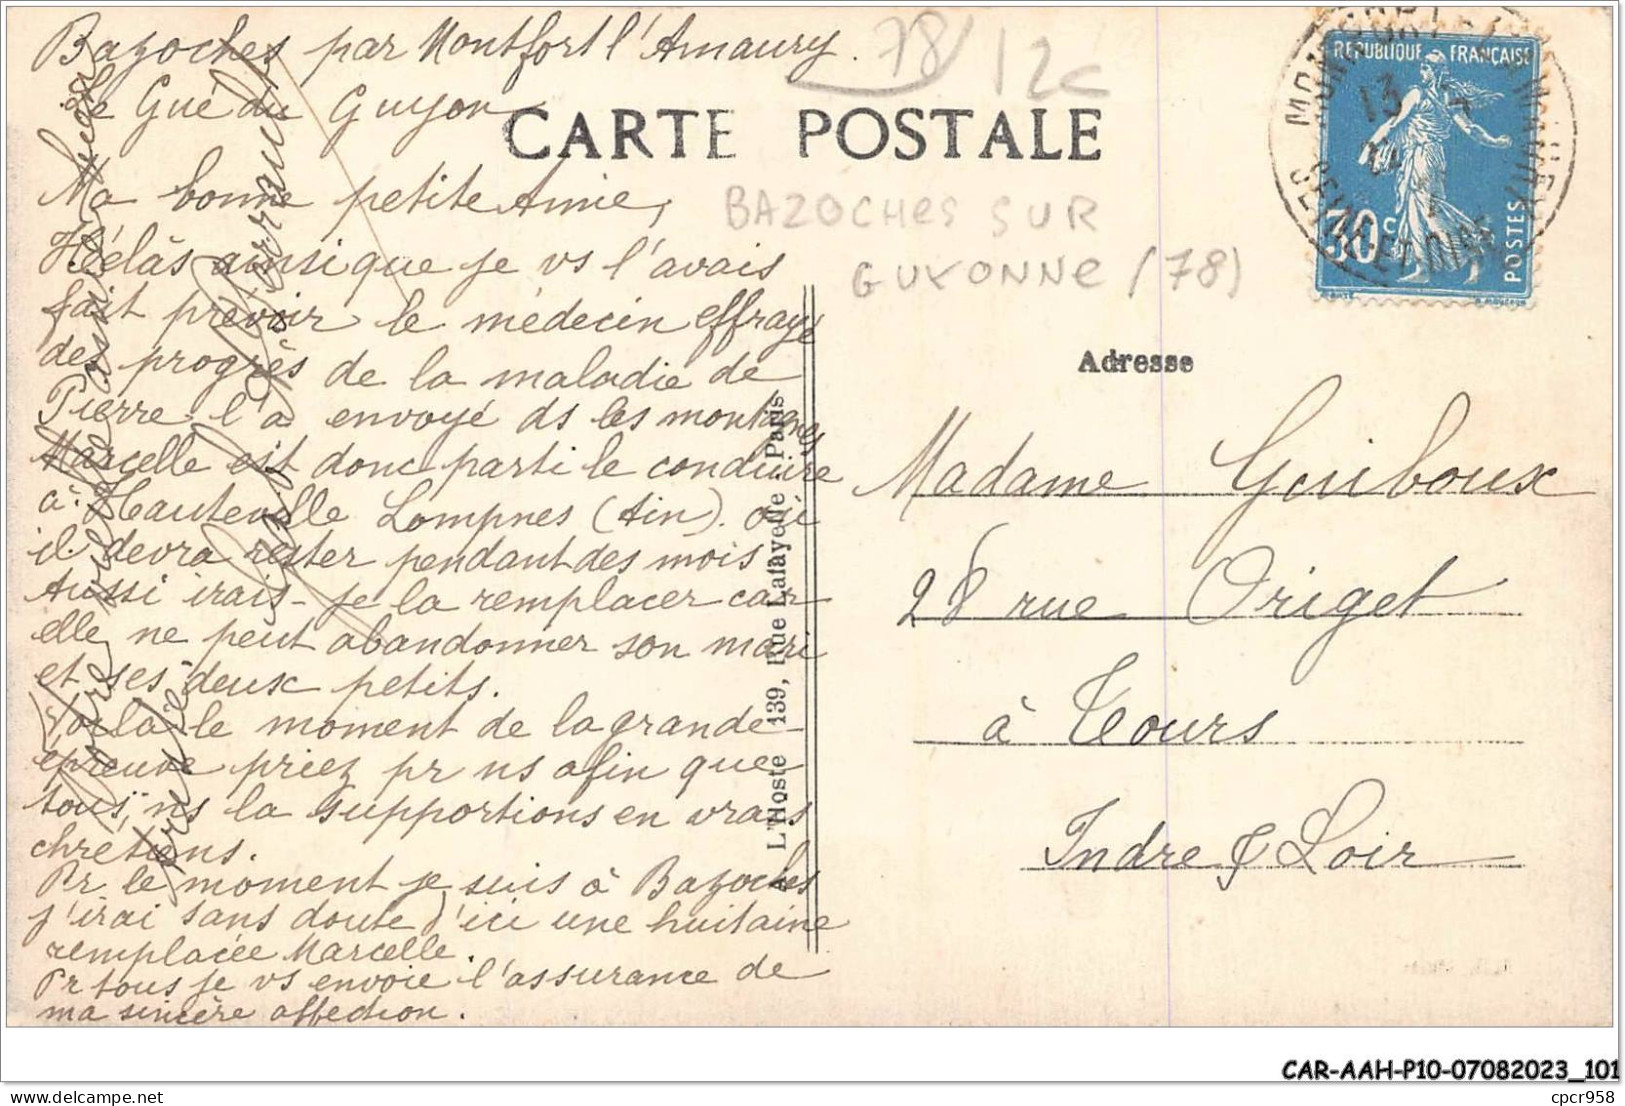 Bazoches par Montfort l'Amaury.
Le Gué du Guyon
78
12c
CARTE POSTALE
Ma bonne petite Amie,
BAZOCHES SUR
GUYONNE (78)
Hélàs ainsi que je vs l'avais
fait prévoir le médecin effrayé
des progrès de la maladie de
Pierre l'a envoyé ds les montagnes
Marcelle est donc parti le conduire
à Hauteville Lompnes (Ain). où
il devra rester pendant des mois
Aussi irais-je la remplacer car
elle ne peut abandonner son mari
et ses deux petits.
Voilà le moment de la grande
épreuve priez pr ns afin que
tous, ns la supportions en vrais
chrétiens.
Pr le moment je suis à Bazoches
j'irai sans doute d'ici une huitaine
remplacée Marcelle.
Pr tous je vs envoie l'assurance de
ma sincère affection.
Votre vieille
L'Hoste 139, Rue Lafayette Paris
REPUBLIQUE FRANÇAISE
30c
POSTES
SEINE ET OISE
13
Adresse
Madame Guiboux
28 rue Origet
à Tours
Indre & Loir
CAR-AAH-P10-07082023_101
cpcr958